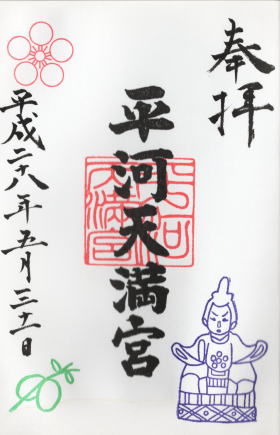 奉拝
平河天満宮
平成二十八年五月三十一日